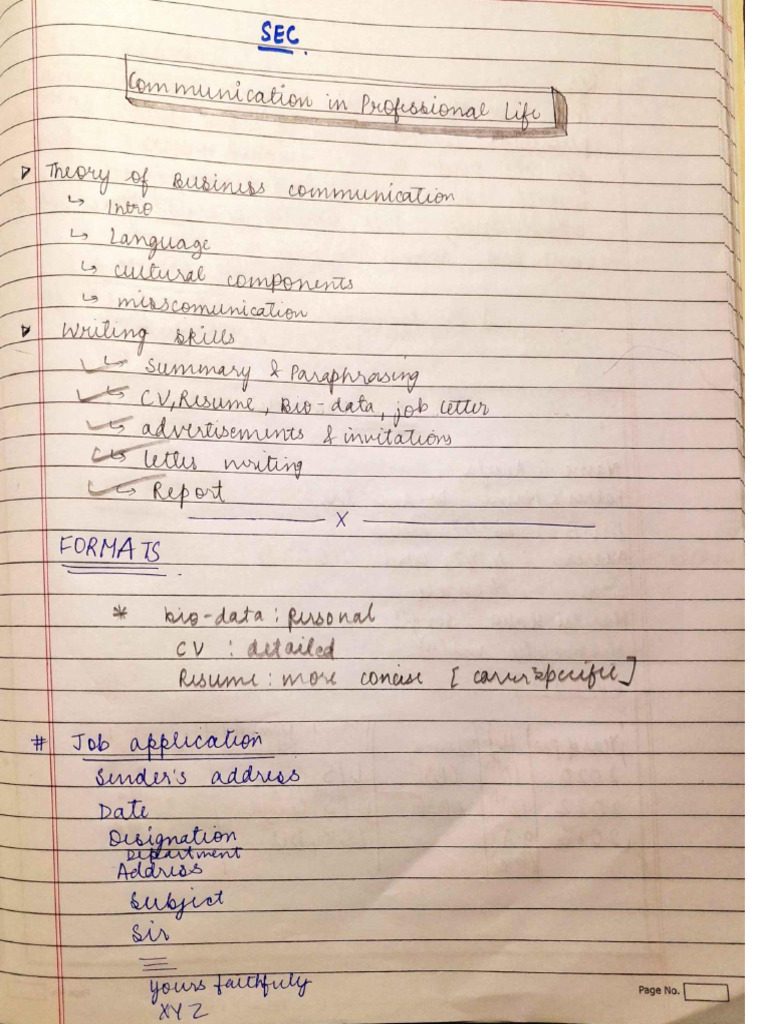 SEC.
Communication in Professional Life
▷ Theory of Business communication
↳ Intro
↳ Language
↳ cultural components
↳ misscomunication
▷ Writing skills
↳ Summary & Paraphrasing
↳ CV, Resume, Bio-data, job letter
↳ advertisements & invitations
↳ letter writing
↳ Report
X
FORMATS
* bio-data : personal
CV : detailed
Resume : more concise [career specific]
# Job application
Sender's address
Date
Designation
Department
Address
Subject
Sir
yours faithfully
XYZ
Page No.